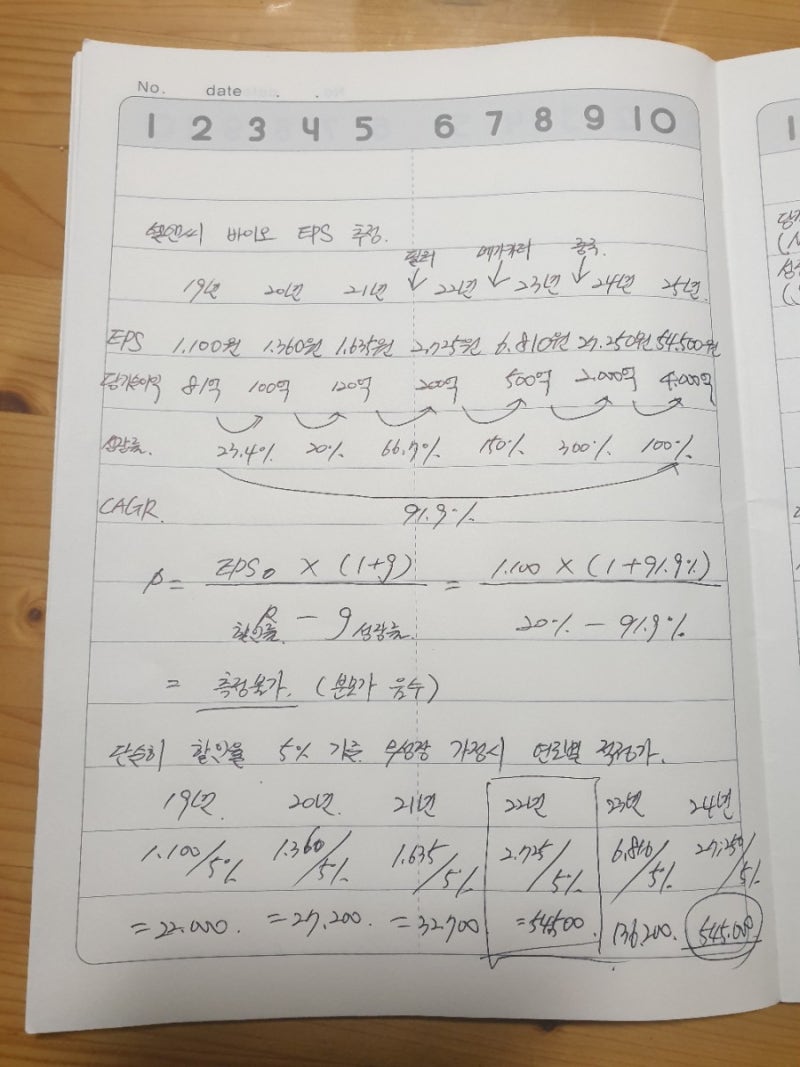 No. date . .
1 2 3 4 5 6 7 8 9 10
바이오 EPS 추정.
필러 메가카티 중국.
19년 20년 21년 22년 23년 24년 25년
EPS 1.100원 1.360원 1.635원 2.725원 6.810원 27.250원 54.500원
당기순이익 81억 100억 120억 200억 500억 2.000억 4.000억
성장률. 23.4% 20% 66.7% 150% 300% 100%
CAGR. 91.9%
P = EPS₀ × (1+g) = 1.100 × (1+91.9%)
할인율 R - g 성장률 20% - 91.9%
= 측정불가. (분모가 음수)
단순히 할인율 5% 기준 무성장 가정시 연도별 적정가.
19년 20년 21년 22년 23년 24년
1.100/5% 1.360/5% 1.635/5% 2.725/5% 6.810/5% 27.250/5%
=22.000. =27,200. =32.700 =54.500 136,200. 545.000